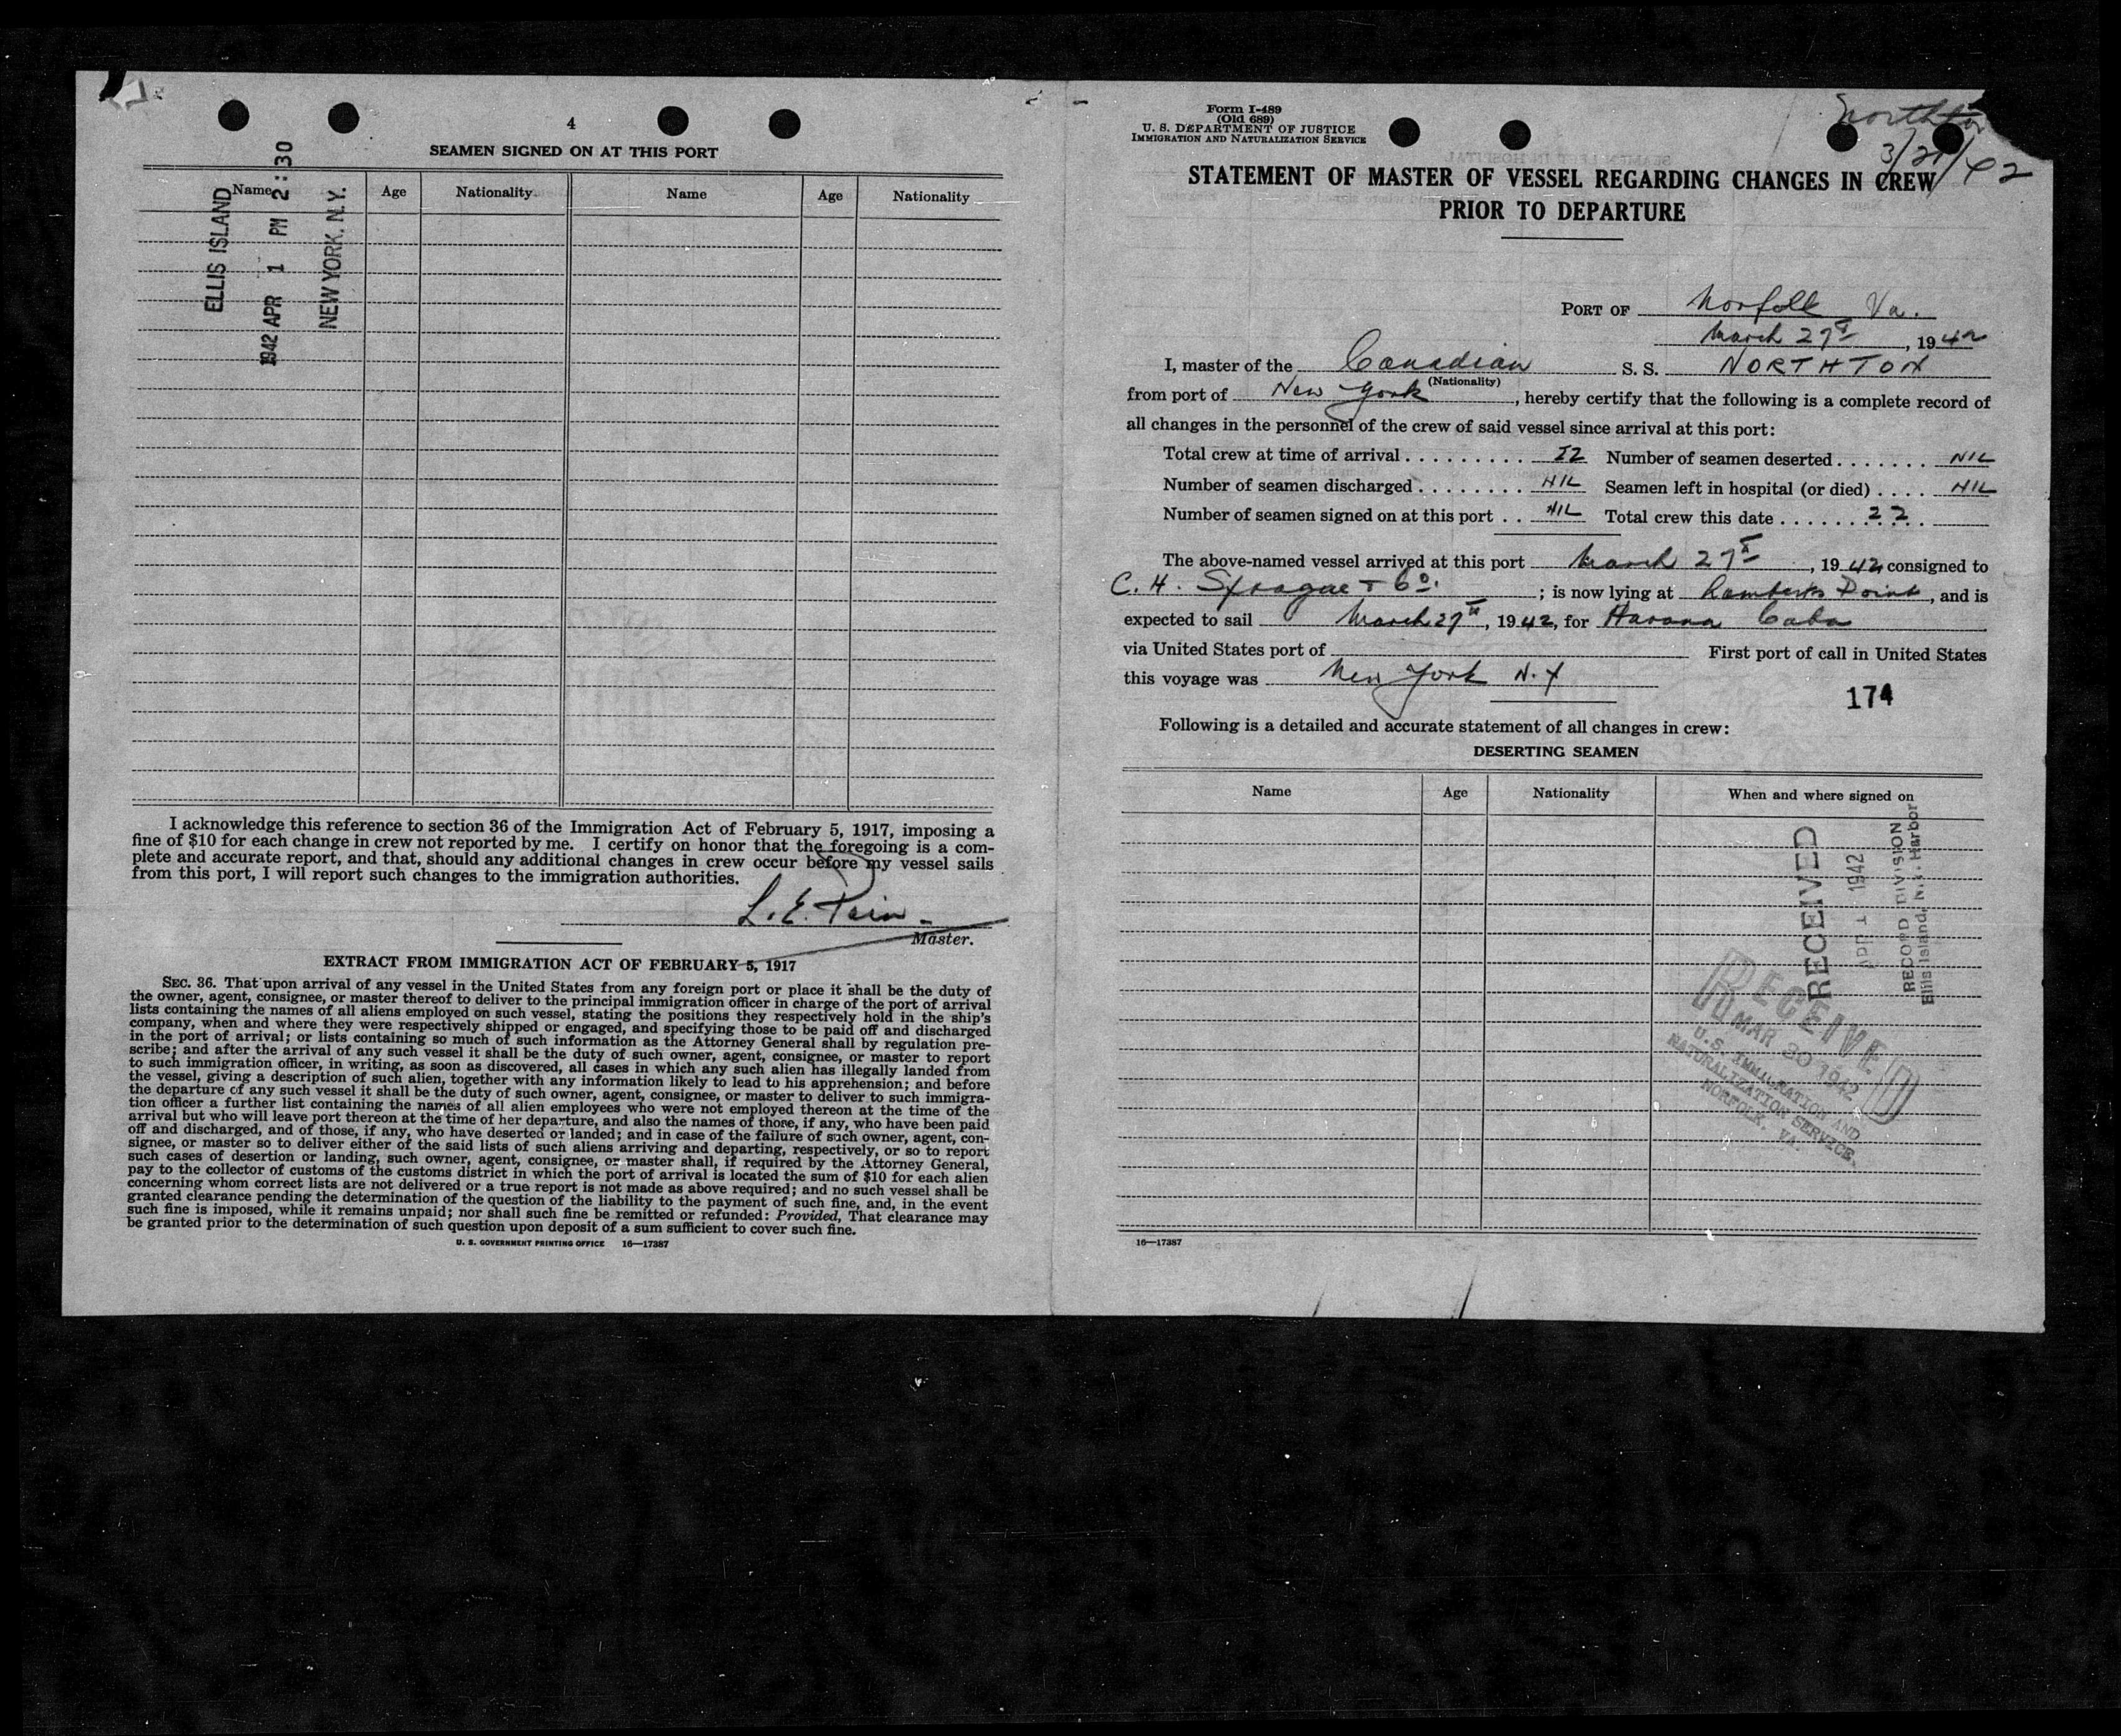 4
SEAMEN SIGNED ON AT THIS PORT
Name Age Nationality Name Age Nationality
ELLIS ISLAND
1942 APR 1 PM 2:30
NEW YORK, N.Y.
I acknowledge this reference to section 36 of the Immigration Act of February 5, 1917, imposing a
fine of $10 for each change in crew not reported by me. I certify on honor that the foregoing is a com-
plete and accurate report, and that, should any additional changes in crew occur before my vessel sails
from this port, I will report such changes to the immigration authorities.
L. E.
Master.
EXTRACT FROM IMMIGRATION ACT OF FEBRUARY 5, 1917
SEC. 36. That upon arrival of any vessel in the United States from any foreign port or place it shall be the duty of
the owner, agent, consignee, or master thereof to deliver to the principal immigration officer in charge of the port of arrival
lists containing the names of all aliens employed on such vessel, stating the positions they respectively hold in the ship's
company, when and where they were respectively shipped or engaged, and specifying those to be paid off and discharged
in the port of arrival; or lists containing so much of such information as the Attorney General shall by regulation pre-
scribe; and after the arrival of any such vessel it shall be the duty of such owner, agent, consignee, or master to report
to such immigration officer, in writing, as soon as discovered, all cases in which any such alien has illegally landed from
the vessel, giving a description of such alien, together with any information likely to lead to his apprehension; and before
the departure of any such vessel it shall be the duty of such owner, agent, consignee, or master to deliver to such immigra-
tion officer a further list containing the names of all alien employees who were not employed thereon at the time of the
arrival but who will leave port thereon at the time of her departure, and also the names of those, if any, who have been paid
off and discharged, and of those, if any, who have deserted or landed; and in case of the failure of such owner, agent, con-
signee, or master so to deliver either of the said lists of such aliens arriving and departing, respectively, or so to report
such cases of desertion or landing, such owner, agent, consignee, or master shall, if required by the Attorney General,
pay to the collector of customs of the customs district in which the port of arrival is located the sum of $10 for each alien
concerning whom correct lists are not delivered or a true report is not made as above required; and no such vessel shall be
granted clearance pending the determination of the question of the liability to the payment of such fine, and, in the event
such fine is imposed, while it remains unpaid; nor shall such fine be remitted or refunded: Provided, That clearance may
be granted prior to the determination of such question upon deposit of a sum sufficient to cover such fine.
U. S. GOVERNMENT PRINTING OFFICE 16—17387
Form I-489
(Old 689)
U. S. DEPARTMENT OF JUSTICE
IMMIGRATION AND NATURALIZATION SERVICE
STATEMENT OF MASTER OF VESSEL REGARDING CHANGES IN CREW
PRIOR TO DEPARTURE
PORT OF Norfolk Va.
March 27th, 1942
I, master of the Canadian S. S. NORTHTON
(Nationality)
from port of New York, hereby certify that the following is a complete record of
all changes in the personnel of the crew of said vessel since arrival at this port:
Total crew at time of arrival . . . . . . . . . . 22 Number of seamen deserted . . . . . . . NIL
Number of seamen discharged . . . . . . . . NIL Seamen left in hospital (or died) . . . . NIL
Number of seamen signed on at this port . . NIL Total crew this date . . . . . . . . . 22
The above-named vessel arrived at this port March 27th, 1942 consigned to
C. H. Sprague & Co.; is now lying at Lamberts Point, and is
expected to sail March 27th, 1942, for Havana Cuba
via United States port of First port of call in United States
this voyage was New York N.Y
174
Following is a detailed and accurate statement of all changes in crew:
DESERTING SEAMEN
Name Age Nationality When and where signed on
RECEIVED
1942
RECORD DIVISION
Ellis Island, N.Y. Harbor
RECEIVED
MAR 30 1942
U.S. IMMIGRATION AND
NATURALIZATION SERVICE.
NORFOLK, VA.
16—17387